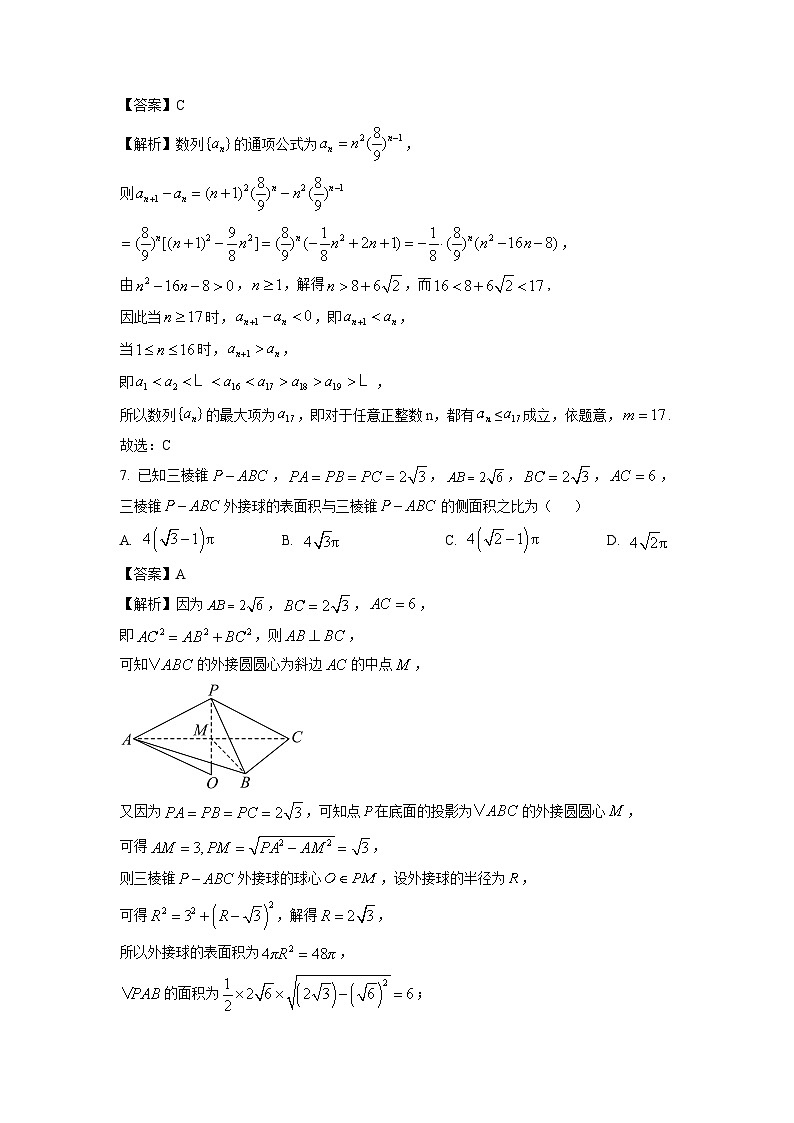 【答案】C
【解析】数列{aₙ}的通项公式为aₙ = n²(8/9)ⁿ⁻¹，
则aₙ₊₁ − aₙ = (n+1)²(8/9)ⁿ − n²(8/9)ⁿ⁻¹
= (8/9)ⁿ[(n+1)² − 9/8 n²] = (8/9)ⁿ(−1/8 n² + 2n + 1) = −1/8 · (8/9)ⁿ(n² − 16n − 8)，
由n² − 16n − 8 > 0，n ≥ 1，解得n > 8 + 6√2，而16 < 8 + 6√2 < 17，
因此当n ≥ 17时，aₙ₊₁ − aₙ < 0，即aₙ₊₁ < aₙ，
当1 ≤ n ≤ 16时，aₙ₊₁ > aₙ，
即a₁ < a₂ < L < a₁₆ < a₁₇ > a₁₈ > a₁₉ > L ，
所以数列{aₙ}的最大项为a₁₇，即对于任意正整数n，都有aₙ ≤ a₁₇成立，依题意，m = 17.
故选：C
7. 已知三棱锥P − ABC，PA = PB = PC = 2√3，AB = 2√6，BC = 2√3，AC = 6，
三棱锥P − ABC外接球的表面积与三棱锥P − ABC的侧面积之比为（ ）
A. 4(√3−1)π B. 4√3π C. 4(√2−1)π D. 4√2π
【答案】A
【解析】因为AB = 2√6，BC = 2√3，AC = 6，
即AC² = AB² + BC²，则AB ⊥ BC，
可知∨ABC的外接圆圆心为斜边AC的中点M，
P
A M C
O B
又因为PA = PB = PC = 2√3，可知点P在底面的投影为∨ABC的外接圆圆心M，
可得AM = 3, PM = √(PA² − AM²) = √3，
则三棱锥P − ABC外接球的球心O ∈ PM，设外接球的半径为R，
可得R² = 3² + (R − √3)²，解得R = 2√3，
所以外接球的表面积为4πR² = 48π，
∨PAB的面积为1/2 × 2√6 × √((2√3) − (√6)²) = 6；